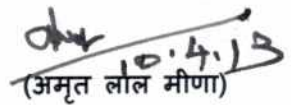 10.4.13
(अमृत लाल मीणा)